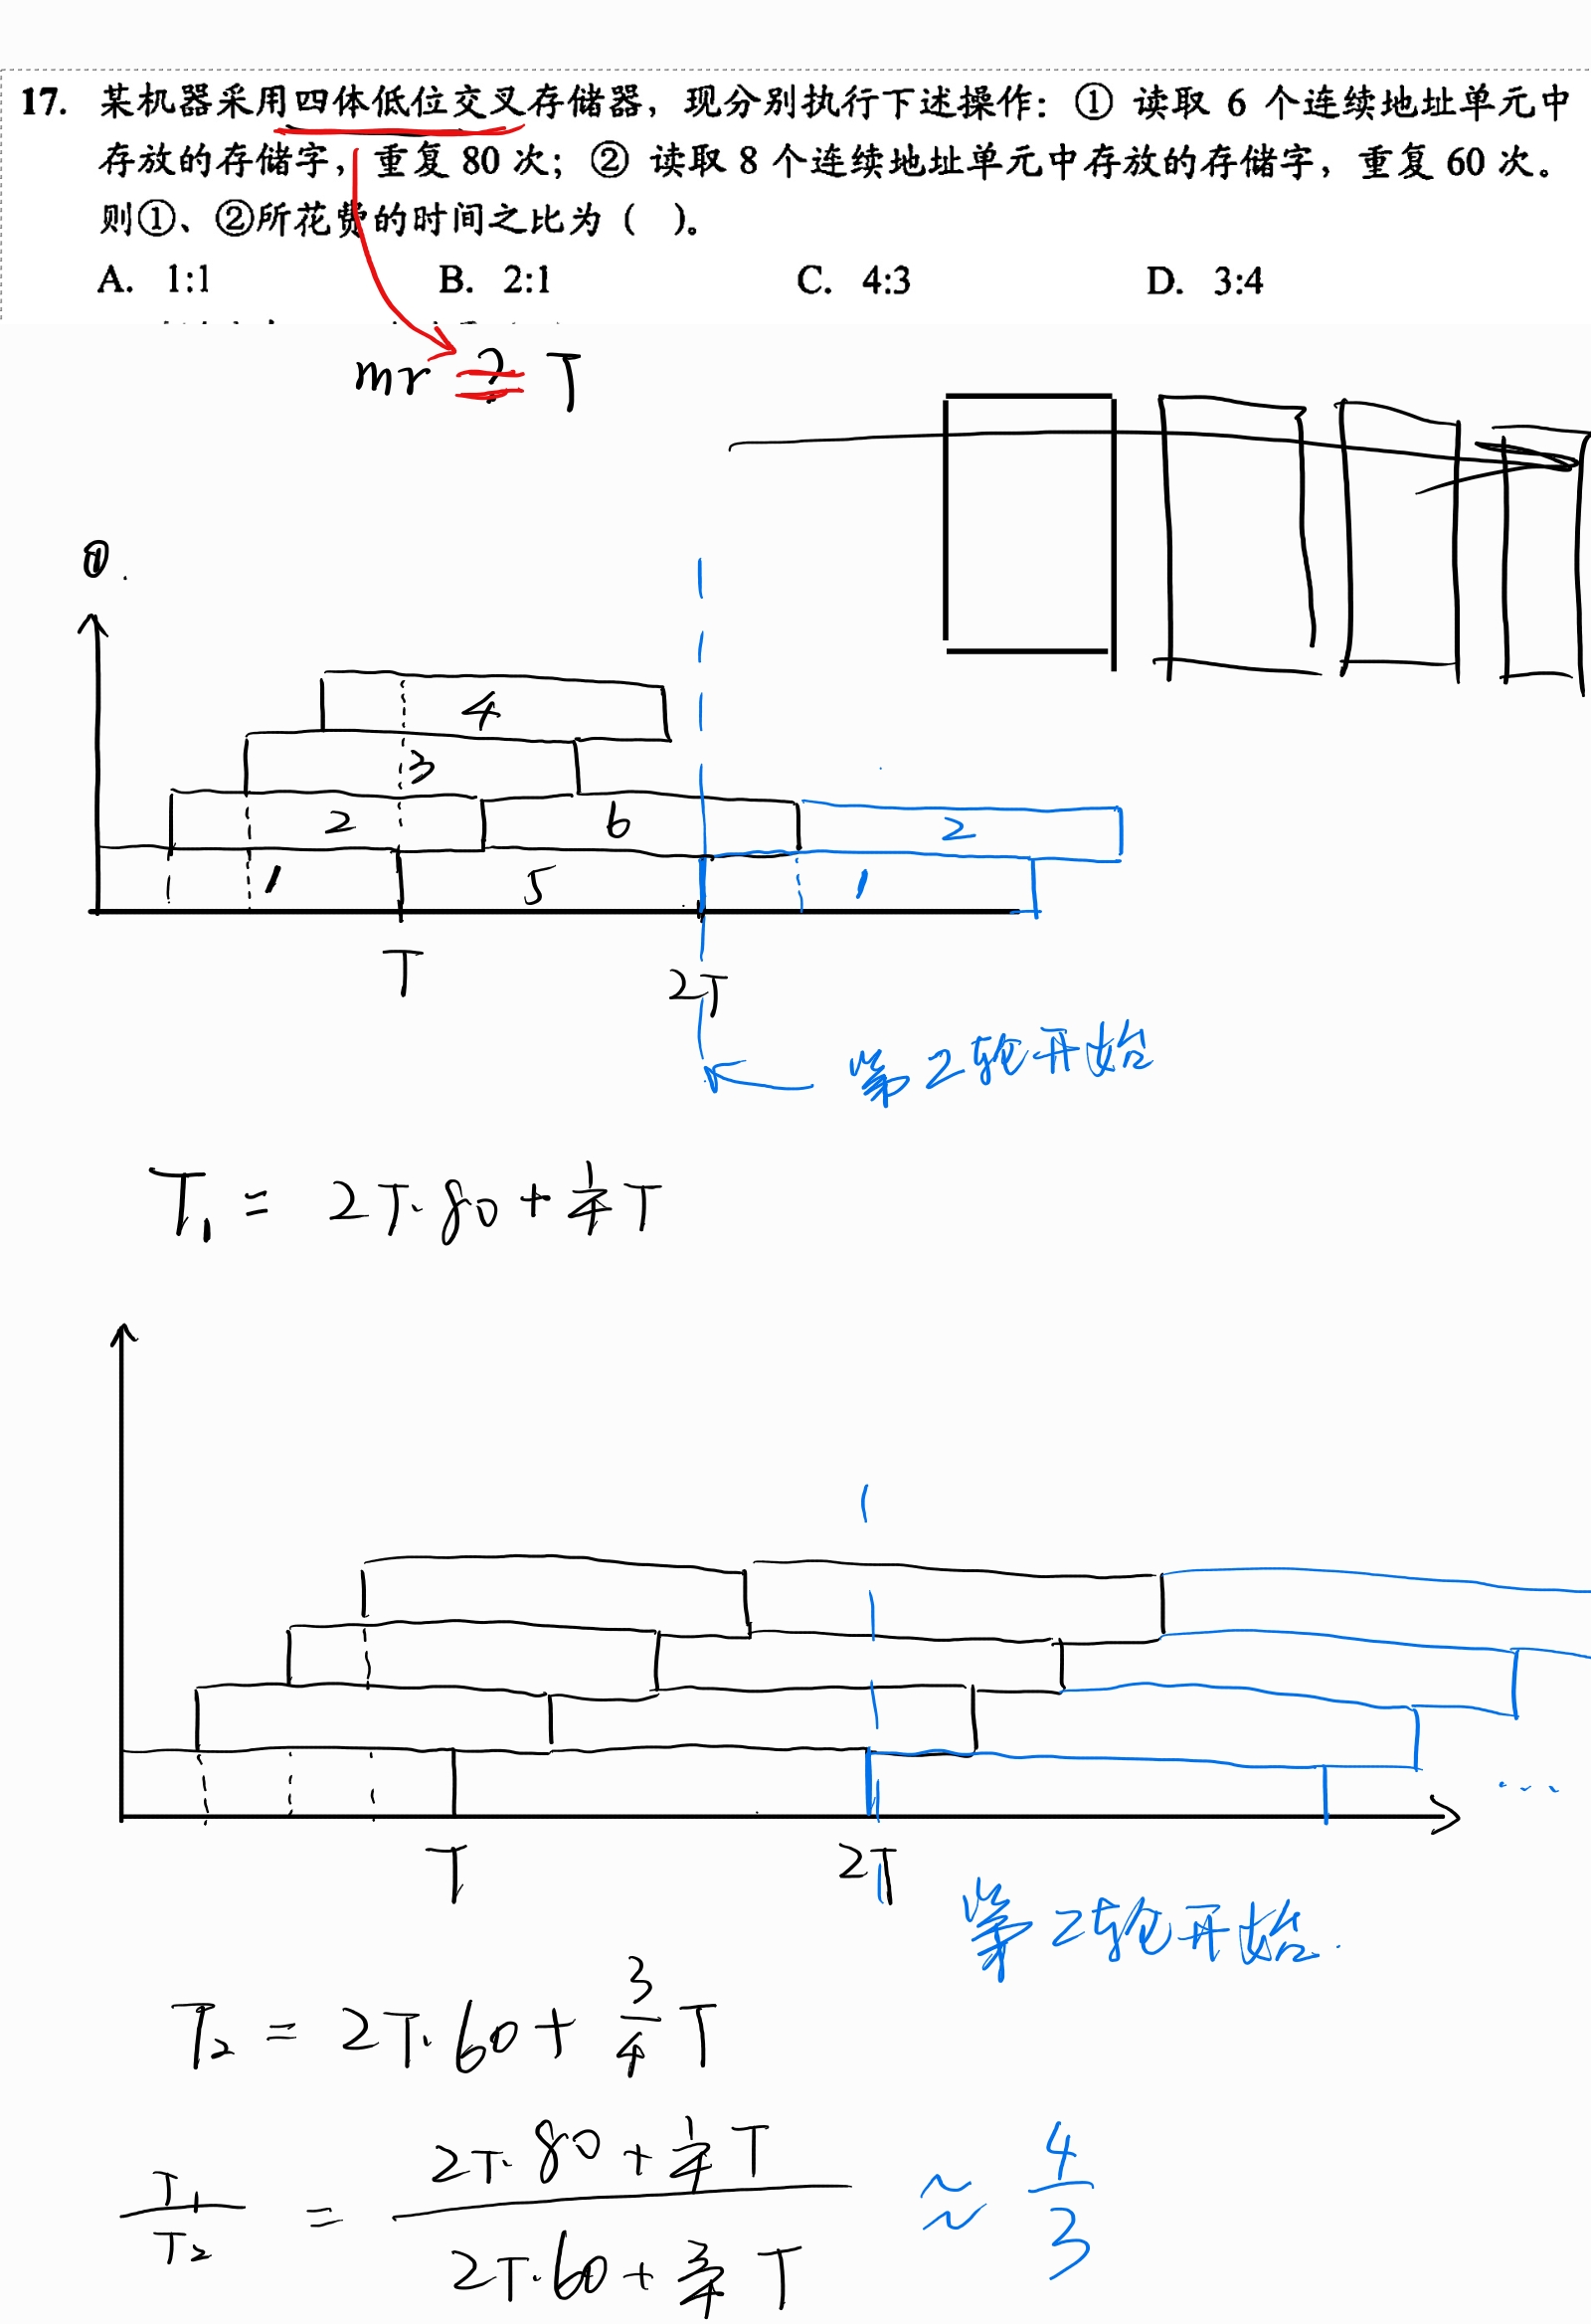 17. 某机器采用四体低位交叉存储器，现分别执行下述操作：① 读取 6 个连续地址单元中
存放的存储字，重复 80 次；② 读取 8 个连续地址单元中存放的存储字，重复 60 次。
则①、②所花费的时间之比为（ ）。
A. 1:1 B. 2:1 C. 4:3 D. 3:4
mr ? T
①.
4
3
2 6 2
1 5 1
T 2T
第2轮开始
T₁ = 2T·80 + 1/4 T
...
T 2T
第2轮开始.
T₂ = 2T·60 + 3/4 T
T₁/T₂ = (2T·80 + 1/4 T)/(2T·60 + 3/4 T) ≈ 4/3